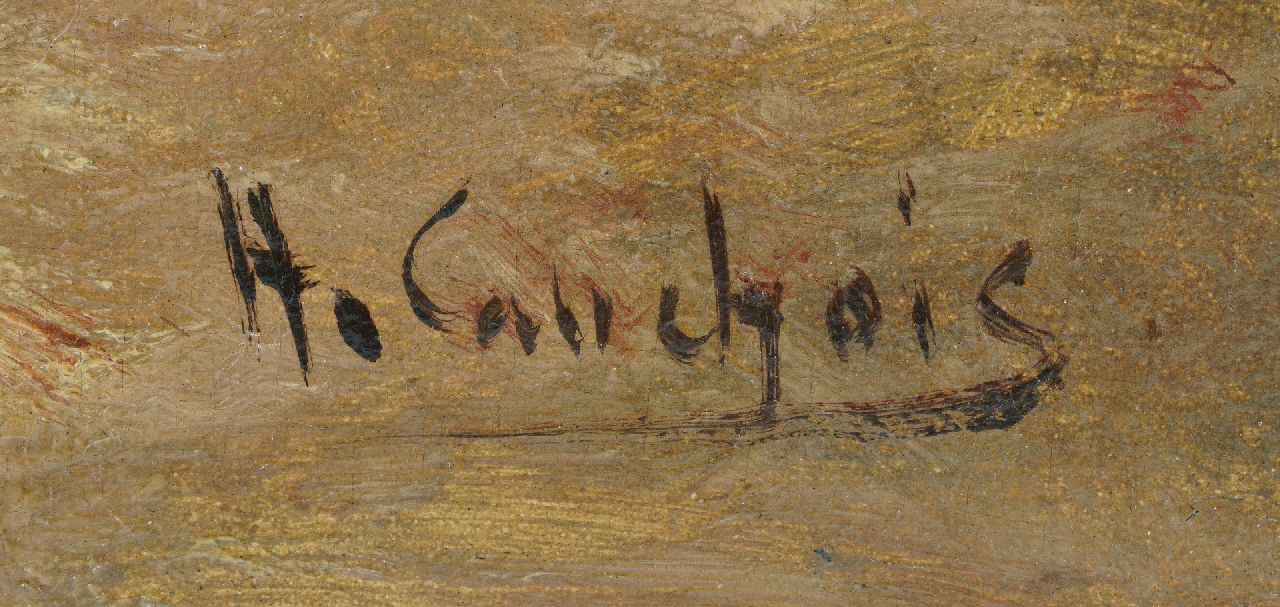 H. Cauchois